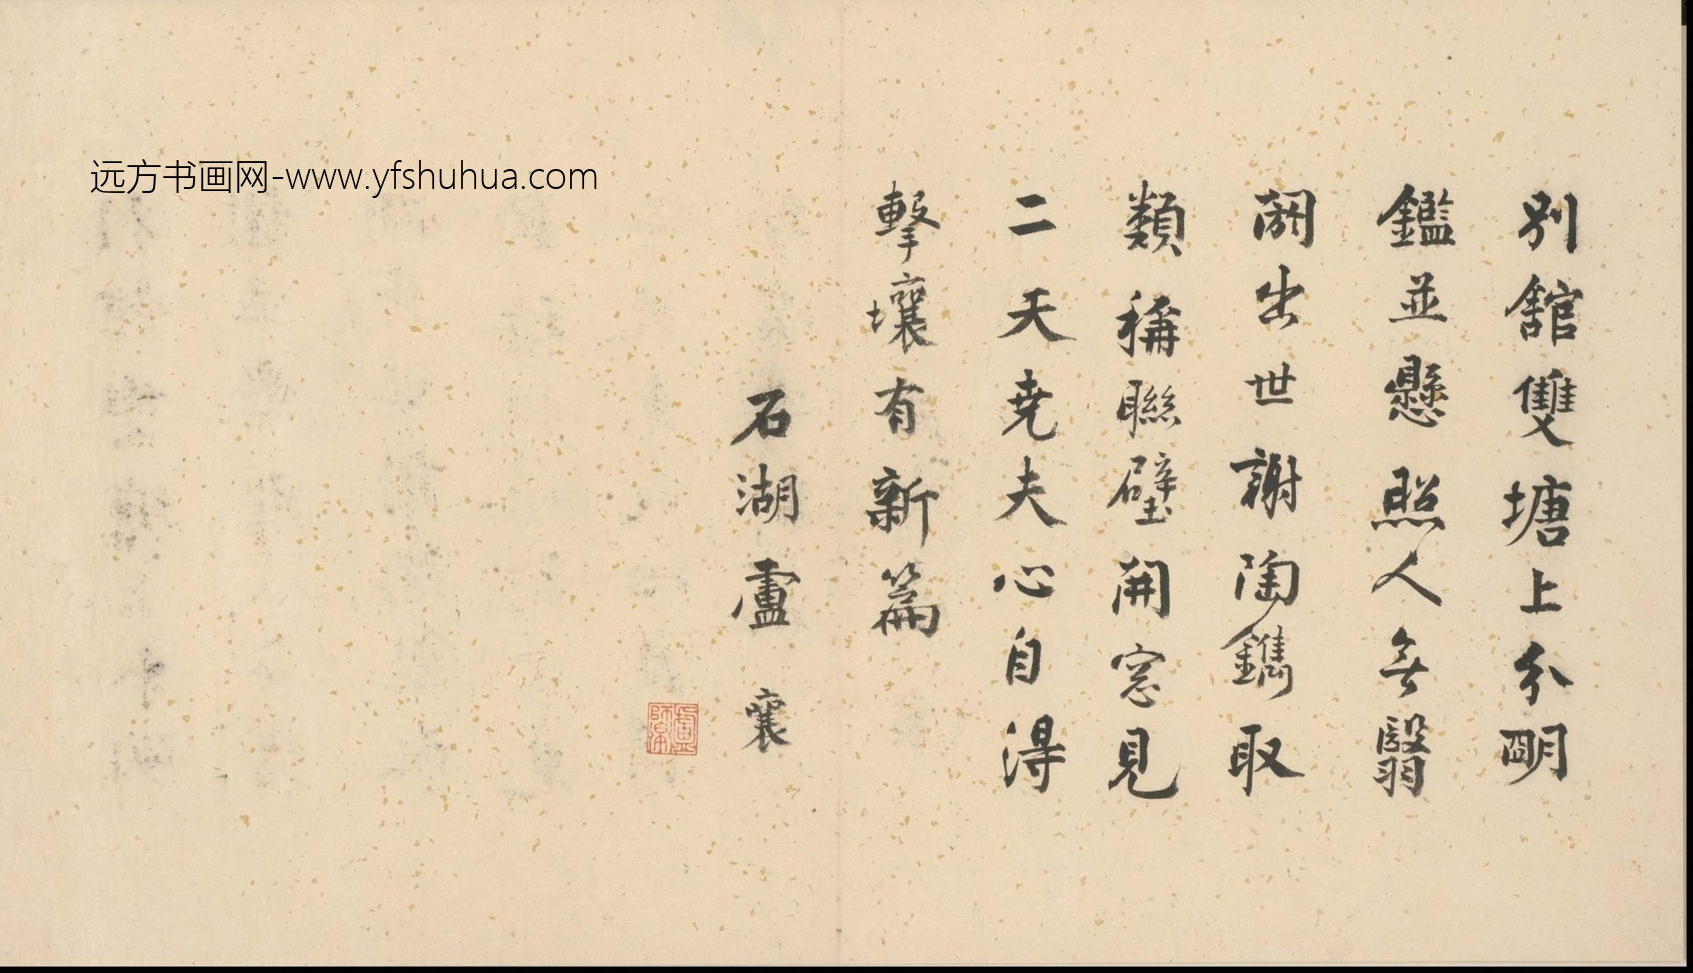 別舘雙塘上分明
鑑並懸照人無翳
闕出世謝陶鐫取
類稱聯璧開窓見
二天尭夫心自得
擊壤有新篇
石湖盧襄
盧師陳
远方书画网-www.yfshuhua.com